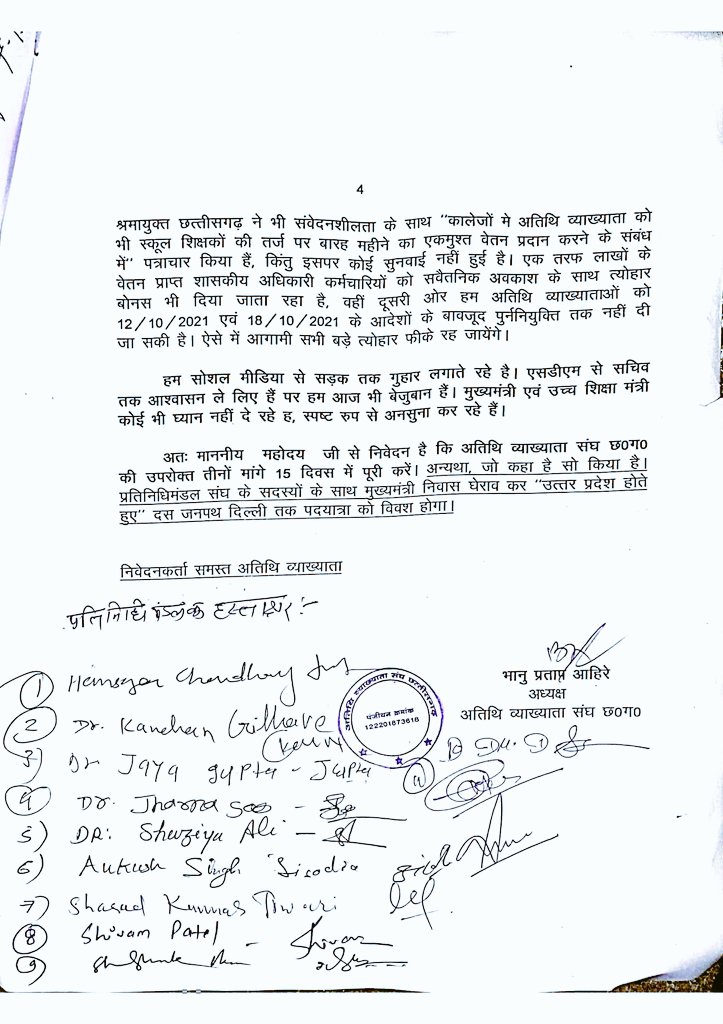 4
श्रमायुक्त छत्तीसगढ़ ने भी संवेदनशीलता के साथ "कालेजों मे अतिथि व्याख्याता को
भी स्कूल शिक्षकों की तर्ज पर बारह महीने का एकमुश्त वेतन प्रदान करने के संबंध
में" पत्राचार किया हैं, किंतु इसपर कोई सुनवाई नहीं हुई है। एक तरफ लाखों के
वेतन प्राप्त शासकीय अधिकारी कर्मचारियों को सवैतनिक अवकाश के साथ त्योहार
बोनस भी दिया जाता रहा है, वहीं दूसरी ओर हम अतिथि व्याख्याताओं को
12/10/2021 एवं 18/10/2021 के आदेशों के बावजूद पुर्ननियुक्ति तक नहीं दी
जा सकी है। ऐसे में आगामी सभी बड़े त्योहार फीके रह जायेंगे।
हम सोशल मीडिया से सड़क तक गुहार लगाते रहे है। एसडीएम से सचिव
तक आश्वासन ले लिए हैं पर हम आज भी बेजुबान हैं। मुख्यमंत्री एवं उच्च शिक्षा मंत्री
कोई भी घ्यान नहीं दे रहे ह, स्पष्ट रुप से अनसुना कर रहे हैं।
अतः माननीय महोदय जी से निवेदन है कि अतिथि व्याख्याता संघ छ0ग0
की उपरोक्त तीनों मांगे 15 दिवस में पूरी करें। अन्यथा, जो कहा है सो किया है।
प्रतिनिधिमंडल संघ के सदस्यों के साथ मुख्यमंत्री निवास घेराव कर "उत्तर प्रदेश होते
हुए" दस जनपथ दिल्ली तक पदयात्रा को विवश होगा।
निवेदनकर्ता समस्त अतिथि व्याख्याता
हस्ताक्षर :-
भानु प्रताप आहिरे
अध्यक्ष
अतिथि व्याख्याता संघ छ0ग0
अतिथि व्याख्याता संघ छत्तीसगढ़
पंजीयन क्रमांक
122201673618
1
2 Dr. Kanchan
3) Dr Jaya Gupta - Jgupta
4 Dr.
5) DR: Shaziya Ali -
6) Ankush Singh Sisodia
7) Sharad Kumar Tiwari
8 Shivam Patel - Shivam
9